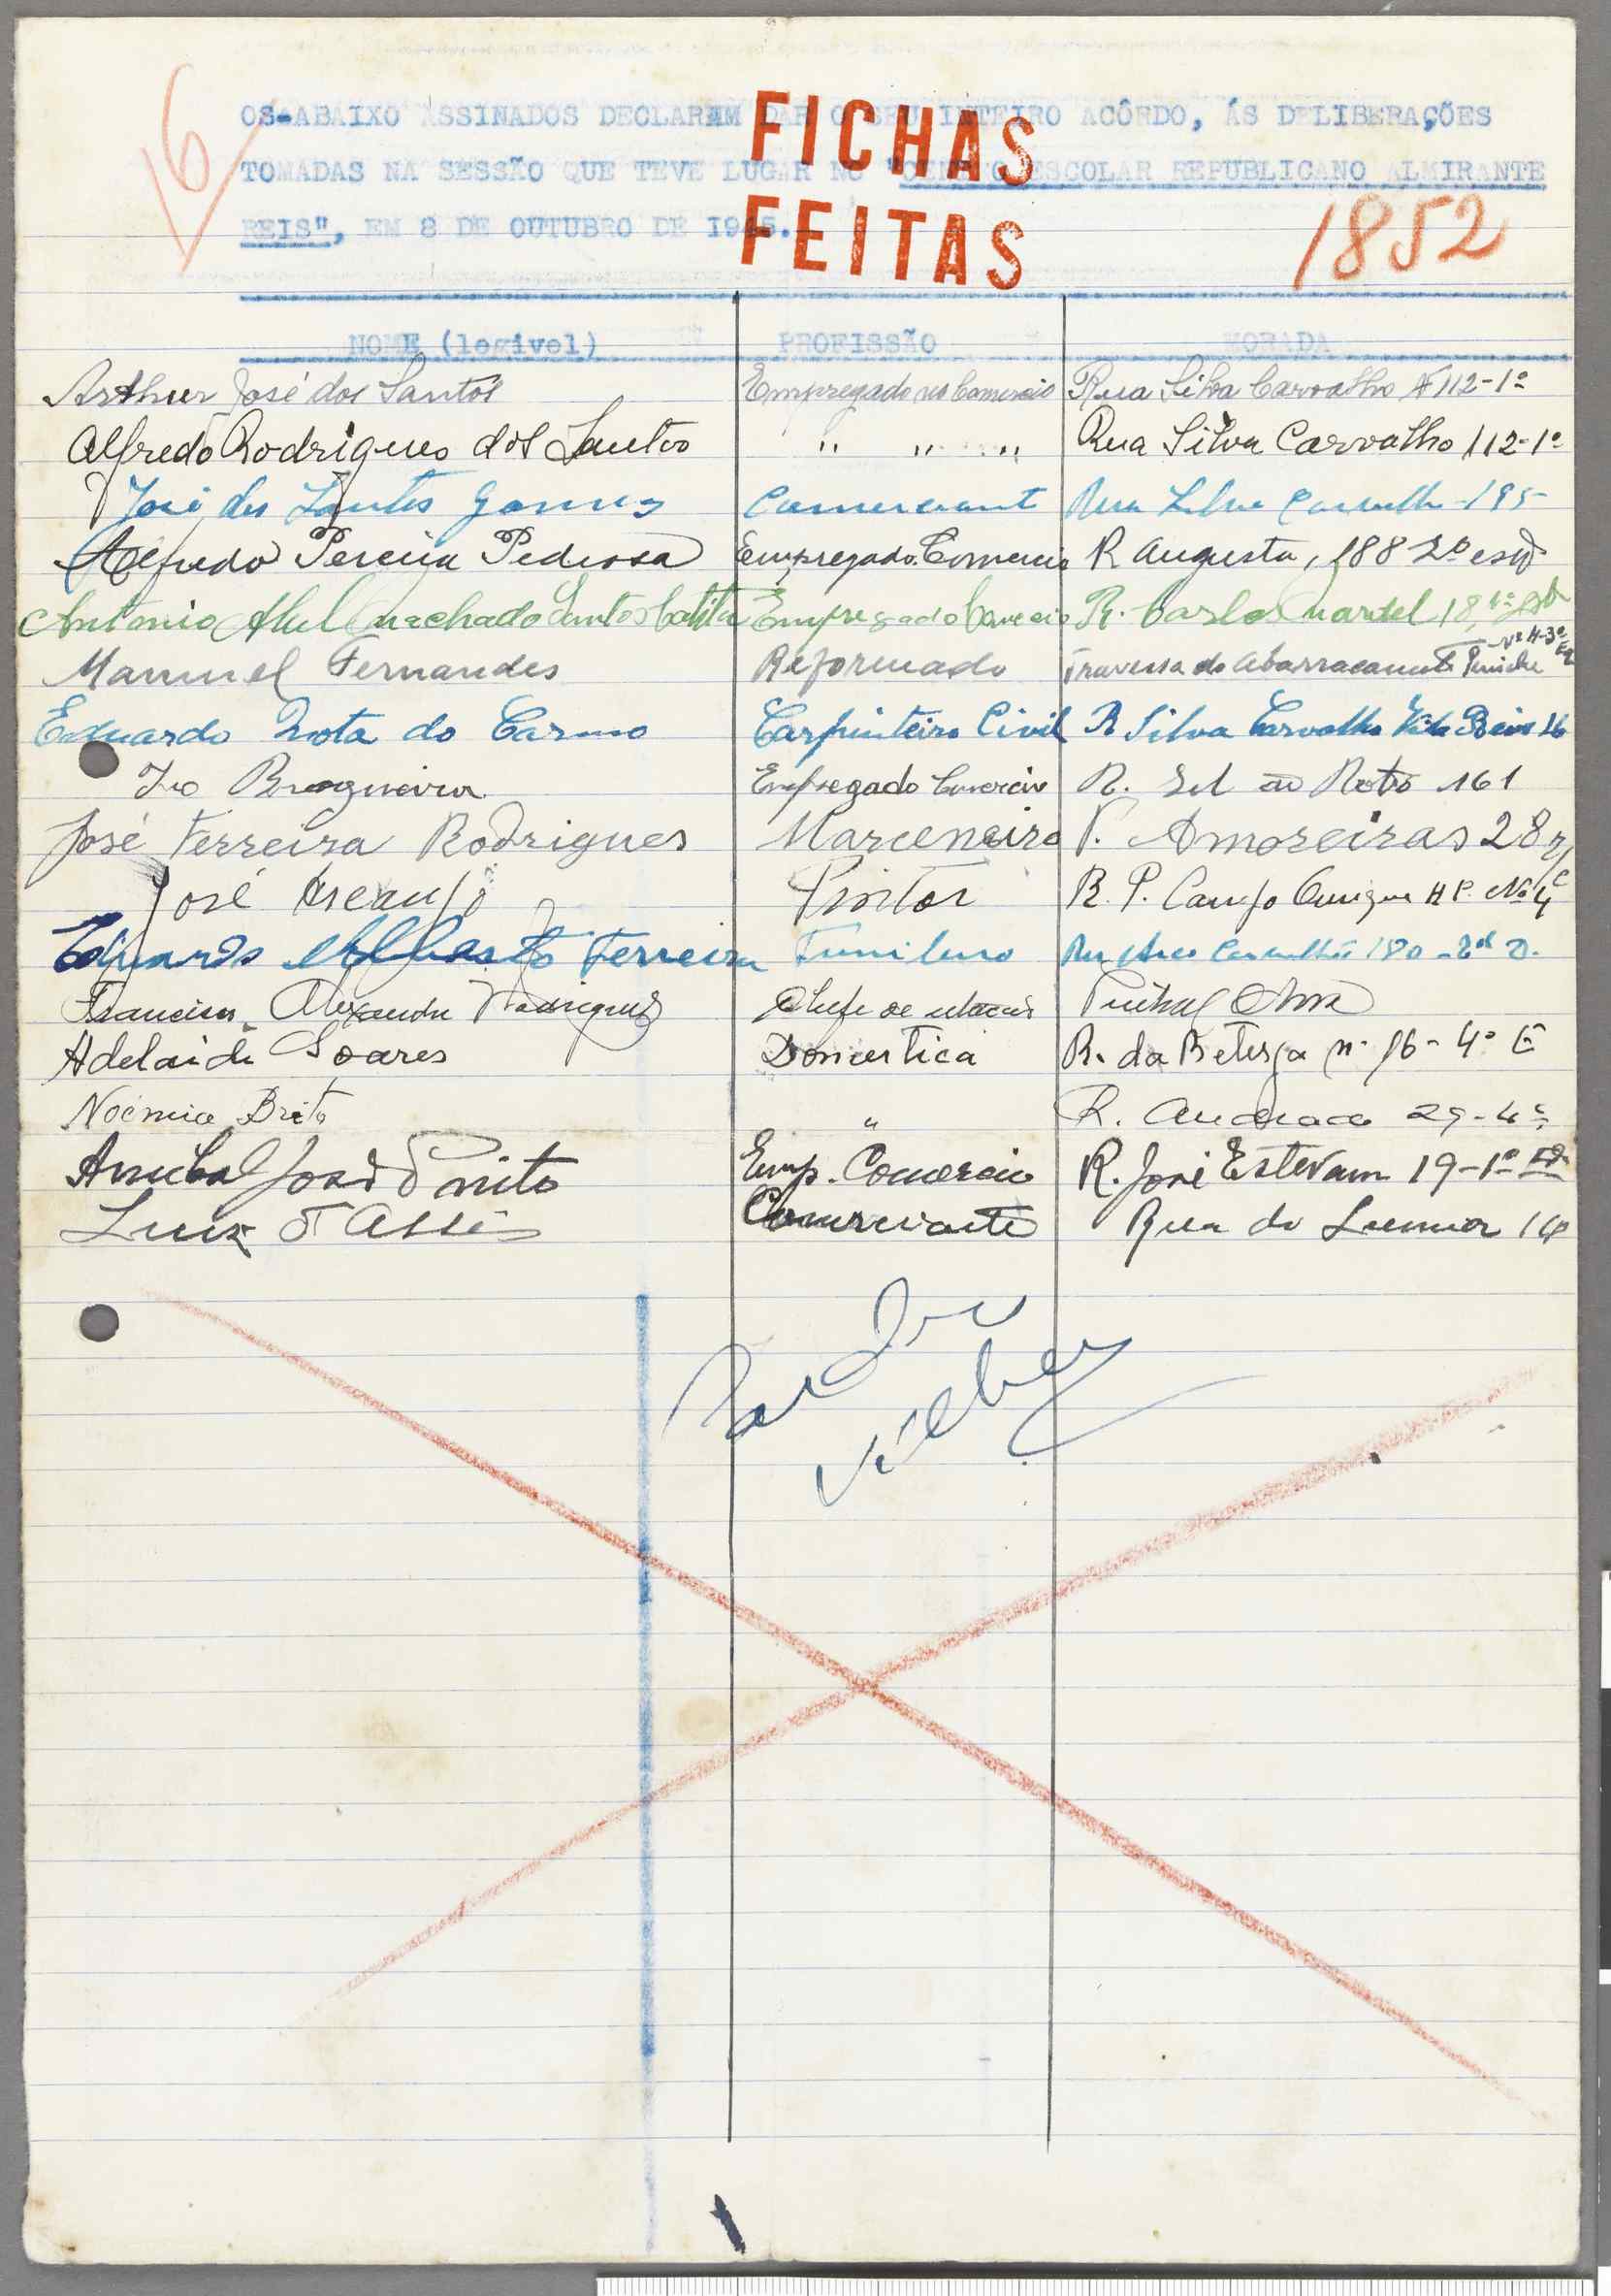 16
OS ABAIXO ASSINADOS DECLARAM DAR O SEU INTEIRO ACÔRDO, ÁS DELIBERAÇÕES
TOMADAS NA SESSÃO QUE TEVE LUGAR NO "CENTRO ESCOLAR REPUBLICANO ALMIRANTE
REIS", EM 8 DE OUTUBRO DE 1945.
FICHAS
FEITAS
1852
NOME (legivel) PROFISSÃO MORADA
Arthur José dos Santos Empregado no Comercio Rua Silva Carvalho Nº 112-1º
Alfredo Rodrigues dos Santos " " " Rua Silva Carvalho 112-1º
José dos Santos Gomes Comerciante Rua Silva Carvalho 195
Alfredo Pereira Pedrosa Empregado Comercio R Augusta, 188 2º esqº
Antonio Abel Machado Santos Empregado Comercio R. Carlos Mardel 18, 4º
Manuel Fernandes Reformado Travessa do Abarracamento Peniche Nº 4-3º Eq
Eduardo Mota do Carmo Carpinteiro Civil R Silva Carvalho Vila 16
Ivo Empregado Comercio R. Sol ao Rato 161
José Ferreira Rodrigues Marceneiro P. Amoreiras 28 r/c
José Araujo Pintor R. P. Campo Ourique H P. Nº 4
Eduardo Ferreira Funileiro Rua Arco Carvalhão 180 D.
Francisco Alexandre Rodrigues Chefe de Pinhal Novo
Adelaide Soares Domestica R. da Betesga nº 16 - 4º E
Noémia Brito " R. Andrade 29-4º
Anibal José Brito Emp. Comercio R. José Estevam 19-1º Eq
Luiz d'Assis Comerciante Rua do Lumiar